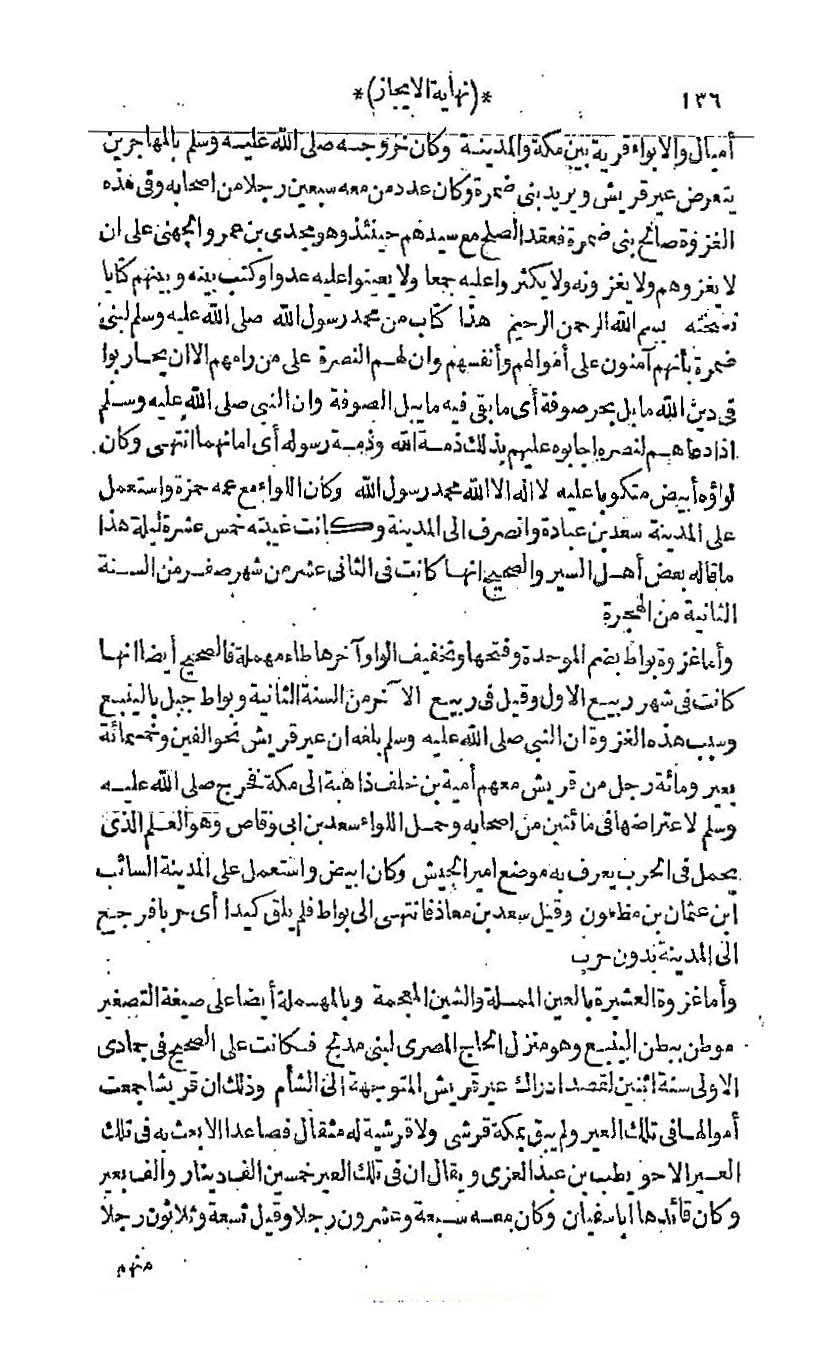 ١٣٦
*(نهاية الايجاز)*
أميال والابواء قرية بين مكة والمدينة وكان خروجه صلى الله عليه وسلم بالمهاجرين
يتعرض عير قريش ويريد بنى ضمرة وكان عدد من معه سبعين رجلا من اصحابه وفى هذه
الغزوة صالح بنى ضمرة فعقد الصلح مع سيدهم حينئذ وهو مجدى بن عمرو الجهنى على ان
لا يغزوهم ولا يغزونه ولا يكثر واعليه جمعا ولا يعينوا عليه عدوا وكتب بينه وبينهم كتابا
نسخته بسم الله الرحمن الرحيم هذا كتاب من محمد رسول الله صلى الله عليه وسلم لبنى
ضمرة بأنهم آمنون على أموالهم وأنفسهم وان لهم النصرة على من رامهم الا ان يحاربوا
فى دين الله ما بل بحر صوفة أى ما بقى فيه ما يبل الصوفة وان النبى صلى الله عليه وسلم
اذا دعاهم لنصره اجابوه عليهم بذلك ذمة الله وذمة رسوله أى امانتهما انتهى وكان
لواؤه أبيض مكتوبا عليه لا اله الا الله محمد رسول الله وكان اللواء مع عمه حمزة واستعمل
على المدينة سعد بن عبادة وانصرف الى المدينة وكانت غيبته خمس عشرة ليلة هذا
ما قاله بعض أهل السير والصحيح انها كانت فى الثانى عشر من شهر صفر من السنة
الثانية من الهجرة
وأما غزوة بواط بضم الموحدة وفتحها وتخفيف الواو آخرها طاء مهملة فالصحيح أيضا انها
كانت فى شهر ربيع الاول وقيل فى ربيع الآخر من السنة الثانية وبواط جبل بالينبع
وسبب هذه الغزوة ان النبى صلى الله عليه وسلم بلغه ان عير قريش نحو الفين وخمسمائة
بعير ومائة رجل من قريش معهم أمية بن خلف ذاهبة الى مكة فخرج صلى الله عليه
وسلم لاعتراضها فى مائتين من اصحابه وحمل اللواء سعد بن ابى وقاص وهو العلم الذى
يحمل فى الحرب يعرف به موضع امير الجيش وكان ابيض واستعمل على المدينة السائب
ابن عثمان بن مظعون وقيل سعد بن معاذ فانتهى الى بواط فلم يلق كيدا أى حربا فرجع
الى المدينة بدون حرب
وأما غزوة العشيرة بالعين المهملة والشين المعجمة وبالمهملة أيضا على صيغة التصغير
موطن ببطن الينبع وهو منزل الحاج المصرى لبنى مدلج فكانت على الصحيح فى جمادى
الاولى سنة اثنين لقصد ادراك عير قريش المتوجهة الى الشأم وذلك ان قريشا جمعت
أموالها فى تلك العير ولم يبق بمكة قرشى ولا قرشية له مثقال فصاعدا الا بعث به فى تلك
العير الا حويطب بن عبد العزى ويقال ان فى تلك العير خمسين الف دينار والف بعير
وكان قائدها ابا سفيان وكان معه سبعة وعشرون رجلا وقيل تسعة وثلاثون رجلا
منهم